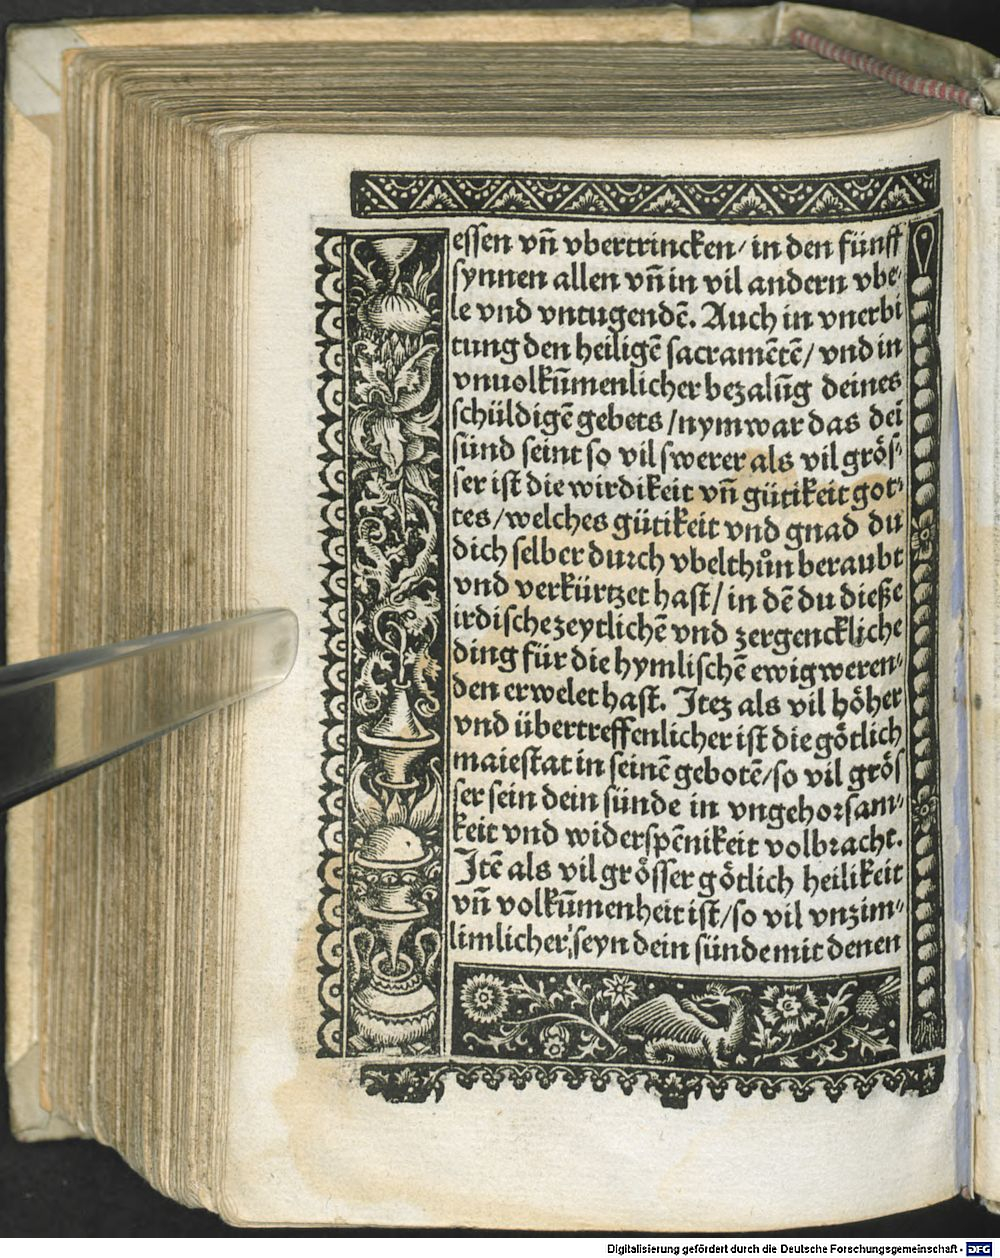 essen vñ vbertrincken/ in den fünff
synnen allen vñ in vil andern vbe⸗
le vnd vntugendē. Auch in vnerbi
tung den heiligē sacramētē/ vnd in
vnuolkūmenlicher bezalūg deines
schüldigē gebets /nym war das dei̅
sünd seint so vil swerer als vil grös⸗
ser ist die wirdikeit vñ gütikeit got⸗
tes/welches gütikeit vnd gnad du
dich selber durch vbelthůn beraubt
vnd verkürtzet hast/ in dē du dieße
irdische zeytlichē vnd zergenckliche
ding für die hymlischē ewig weren⸗
den erwelet hast. Itez als vil höher
vnd übertreffenlicher ist die götlich
maiestat in seinē gebotē/so vil grös
ser sein dein sünde in vngehorsam⸗
keit vnd widerspēnikeit volbracht.
Itē als vil grösser götlich heilikeit
vñ volkūmenheit ist/so vil vnzim⸗
limlicher seyn dein sünde mit denen
Digitalisierung gefördert durch die Deutsche Forschungsgemeinschaft - DFG